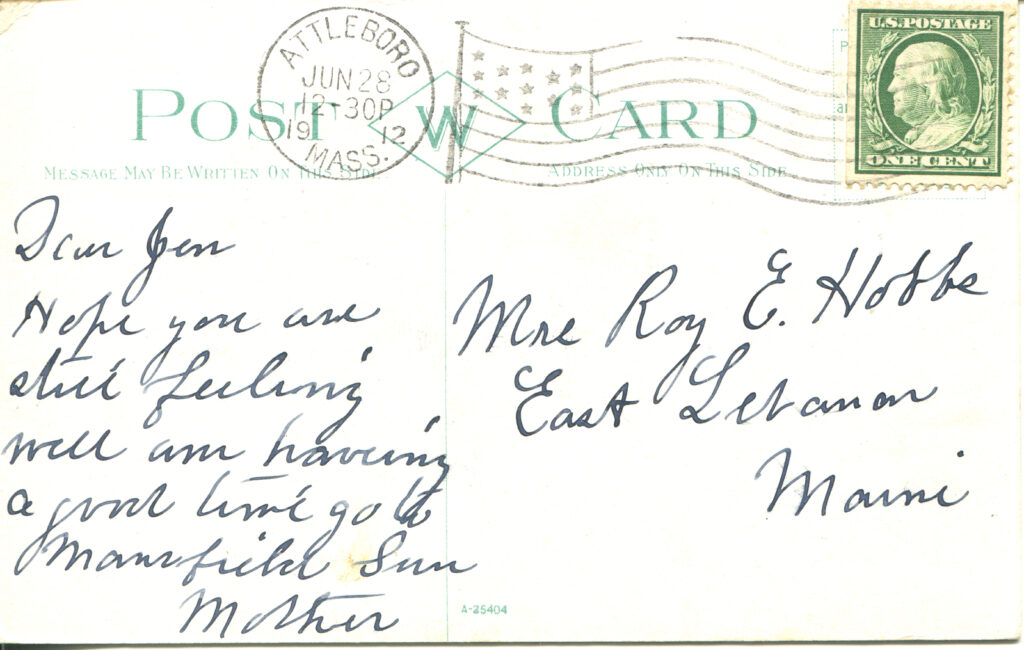 ATTLEBORO
JUN 28
12-30P
19 12
MASS.
U.S. POSTAGE
ONE CENT
POST W CARD
MESSAGE MAY BE WRITTEN ON THIS SIDE
ADDRESS ONLY ON THIS SIDE
Dear Jen
Hope you are
still feeling
well am haveing
a good time go to
Mansfield Sun
Mother
Mrs Roy E. Hobbs
East Lebanon
Maine
A-25404